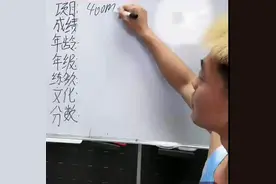 项目: 400m
成绩:
年龄:
年级:
练级:
文化:
分数: